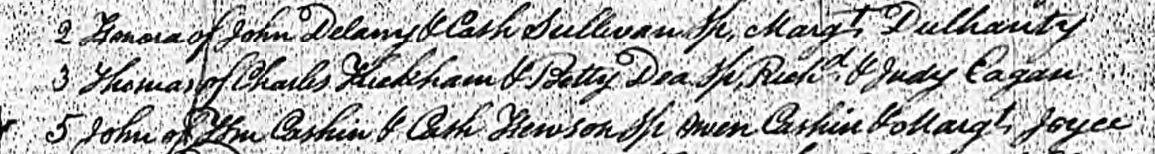 2 Honora of John Delany & Cath Sullivan Sp, Margt Dulhanty
3 Thomas of Charles Kickham & Betty Dea Sp, Richd & Judy Eagan
5 John of Wm Cashin & Cath Hewson Sp Owen Cashin & Margt Joyce